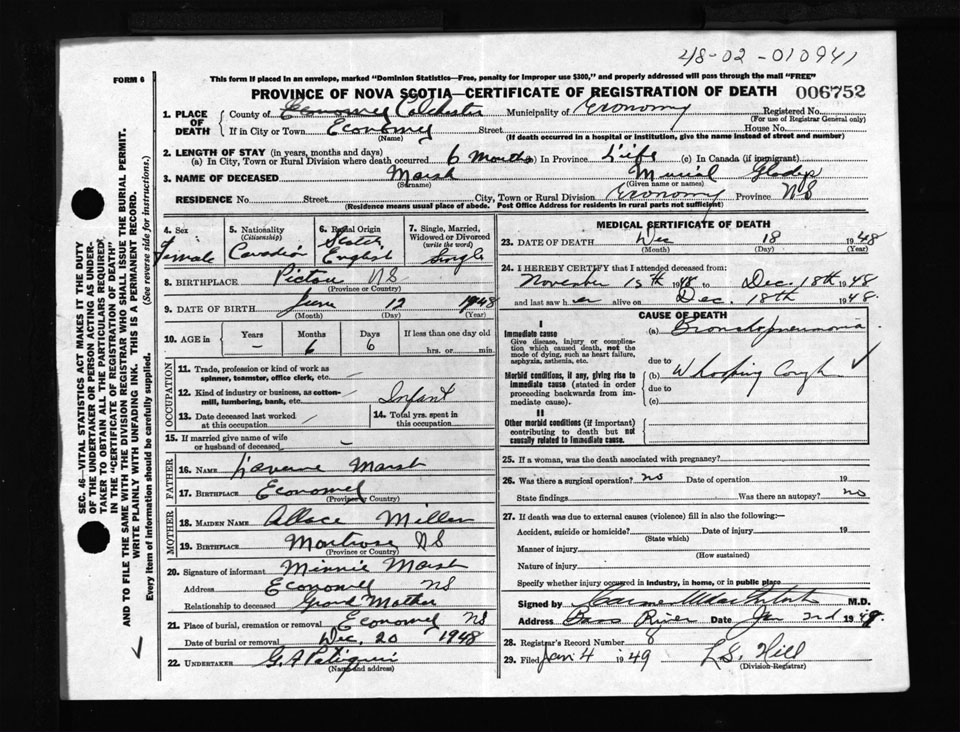 48-02-010941
This form if placed in an envelope, marked "Dominion Statistics—Free, penalty for improper use $300," and properly addressed will pass through the mail "FREE"
FORM 6
PROVINCE OF NOVA SCOTIA—CERTIFICATE OF REGISTRATION OF DEATH 006752
1. PLACE OF DEATH
County of Economy Colchester Municipality of Economy Registered No.
(For use of Registrar General only)
If in City or Town Economy Street House No.
(Name) (If death occurred in a hospital or institution, give the name instead of street and number)
2. LENGTH OF STAY (in years, months and days)
(a) In City, Town or Rural Division where death occurred 6 Months (b) In Province Life (c) In Canada (if immigrant)
3. NAME OF DECEASED Marsh Murial Gladys
(Surname) (Given name or names)
RESIDENCE No. Street City, Town or Rural Division Economy Province NS
(Residence means usual place of abode. Post Office Address for residents in rural parts not sufficient)
4. Sex Female
5. Nationality (Citizenship) Canadian
6. Racial Origin Scotch English
7. Single, Married, Widowed or Divorced (write the word) Single
8. BIRTHPLACE Pictou NS
(Province or Country)
9. DATE OF BIRTH June 12 1948
(Month) (Day) (Year)
10. AGE in Years – Months 6 Days 6 If less than one day old hrs. or min.
OCCUPATION
11. Trade, profession or kind of work as spinner, teamster, office clerk, etc.
12. Kind of industry or business, as cotton-mill, lumbering, bank, etc. Infant
13. Date deceased last worked at this occupation
14. Total yrs. spent in this occupation
15. If married give name of wife or husband of deceased –
FATHER
16. NAME Laverne Marsh
17. BIRTHPLACE Economy
(Province or Country)
MOTHER
18. MAIDEN NAME Miller
19. BIRTHPLACE Montrose NS
(Province or Country)
20. Signature of informant Minnie Marsh
Address Economy NS
Relationship to deceased Grand Mother
21. Place of burial, cremation or removal Economy NS
Date of burial or removal Dec. 20 1948
22. UNDERTAKER G. A
(Name and address)
MEDICAL CERTIFICATE OF DEATH
23. DATE OF DEATH Dec 18 1948
(Month) (Day) (Year)
24. I HEREBY CERTIFY that I attended deceased from:
November 15th 1948 to Dec. 18th 1948
and last saw her alive on Dec. 18th 1948.
CAUSE OF DEATH
I
Immediate cause (a) Bronchopneumonia.
Give disease, injury or complication which caused death, not the mode of dying, such as heart failure, asphyxia, asthenia, etc.
due to
Morbid conditions, if any, giving rise to immediate cause (stated in order proceeding backwards from immediate cause).
(b) Whooping Cough ✓
due to
(c)
II
Other morbid conditions (if important) contributing to death but not causally related to immediate cause.
25. If a woman, was the death associated with pregnancy?
26. Was there a surgical operation? no Date of operation 19
State findings Was there an autopsy? no
27. If death was due to external causes (violence) fill in also the following:—
Accident, suicide or homicide? Date of injury 19
(State which)
Manner of injury
(How sustained)
Nature of injury
Specify whether injury occured in industry, in home, or in public place
Signed by M.D.
Address Bass River Date Jan 2nd 1949.
28. Registrar's Record Number 8
29. Filed Jan 4 1949 L S. Hill
(Division-Registrar)
SEC. 46—VITAL STATISTICS ACT MAKES IT THE DUTY
OF THE UNDERTAKER OR PERSON ACTING AS UNDER-
TAKER TO OBTAIN ALL THE PARTICULARS REQUIRED
IN THE "CERTIFICATE OF REGISTRATION OF DEATH"
AND TO FILE THE SAME WITH THE DIVISION REGISTRAR WHO SHALL ISSUE THE BURIAL PERMIT.
WRITE PLAINLY WITH UNFADING INK. THIS IS A PERMANENT RECORD.
Every item of information should be carefully supplied. (See reverse side for instructions.)